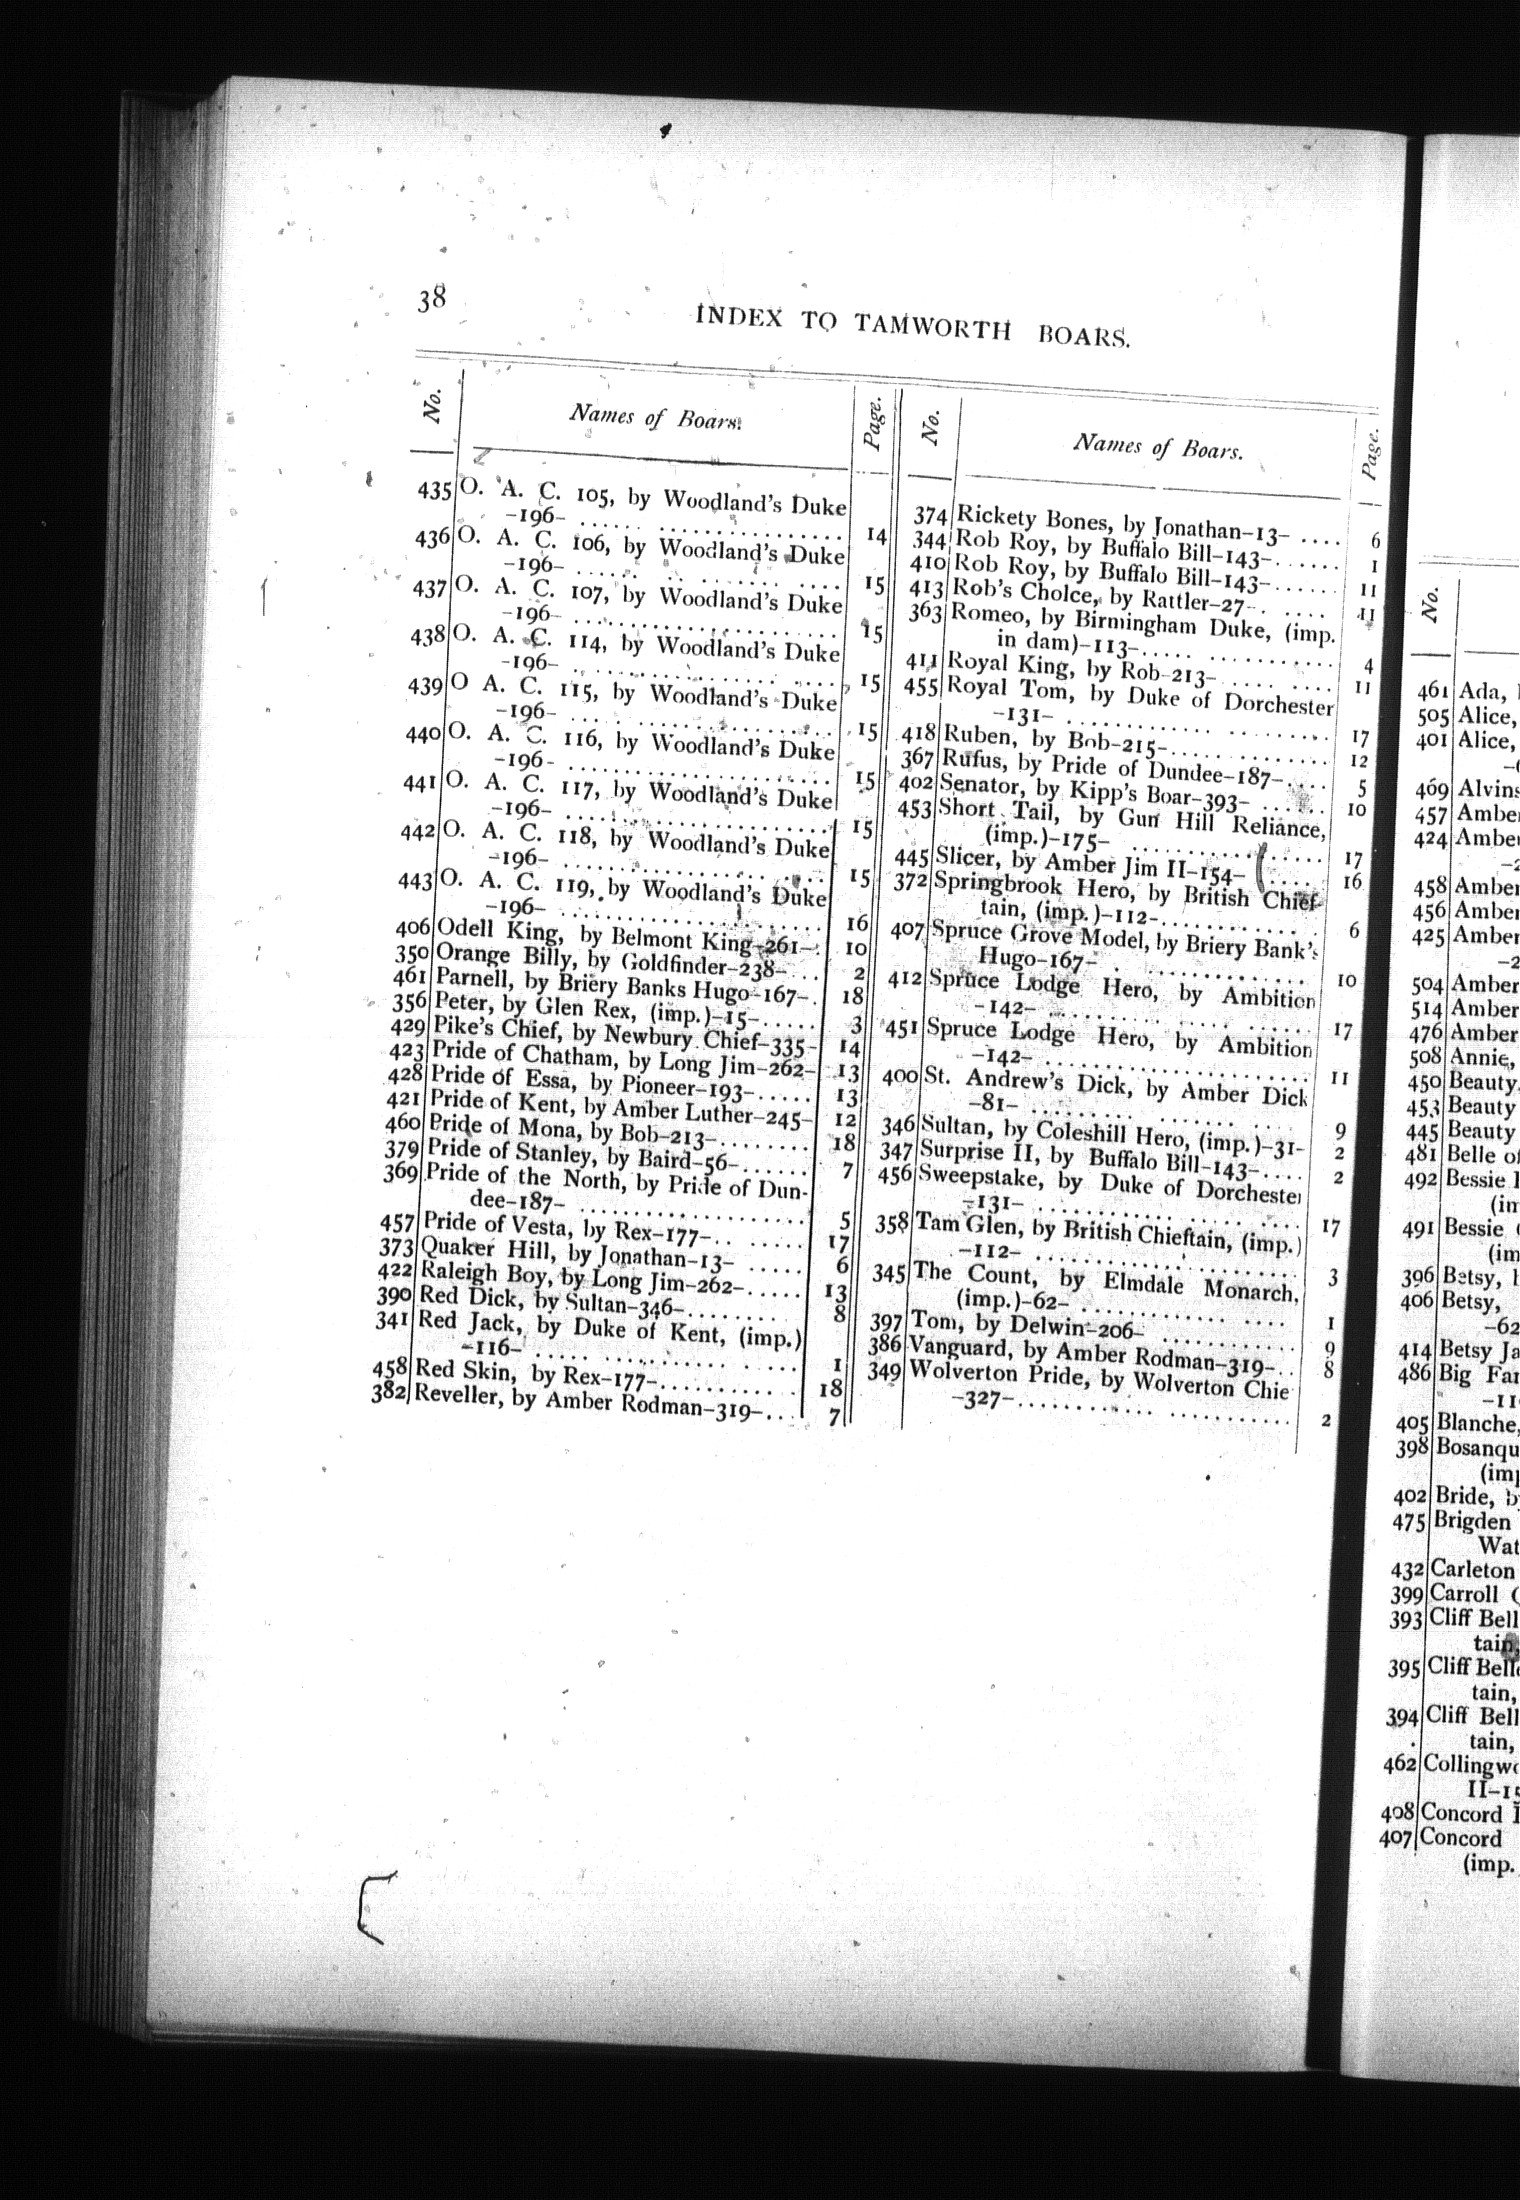 38
INDEX TO TAMWORTH BOARS.
No.
Names of Boars.
Page.
435 O. A. C. 105, by Woodland's Duke
-196- .................... 14
436 O. A. C. 106, by Woodland's Duke
-196- .................... 15
437 O. A. C. 107, by Woodland's Duke
-196- .................... 15
438 O. A. C. 114, by Woodland's Duke
-196- .................... 15
439 O A. C. 115, by Woodland's Duke
-196- .................... 15
440 O. A. C. 116, by Woodland's Duke
-196- .................... 15
441 O. A. C. 117, by Woodland's Duke
-196- .................... 15
442 O. A. C. 118, by Woodland's Duke
-196- .................... 15
443 O. A. C. 119, by Woodland's Duke
-196- .................... 16
406 Odell King, by Belmont King-261-. 10
350 Orange Billy, by Goldfinder-238-... 2
461 Parnell, by Briery Banks Hugo-167-. 18
356 Peter, by Glen Rex, (imp.)-15-..... 3
429 Pike's Chief, by Newbury Chief-335- 14
423 Pride of Chatham, by Long Jim-262- 13
428 Pride of Essa, by Pioneer-193-..... 13
421 Pride of Kent, by Amber Luther-245- 12
460 Pride of Mona, by Bob-213-........ 18
379 Pride of Stanley, by Baird-56-...... 7
369 Pride of the North, by Pride of Dun-
dee-187- .................... 5
457 Pride of Vesta, by Rex-177-.. ...... 17
373 Quaker Hill, by Jonathan-13- ..... 6
422 Raleigh Boy, by Long Jim-262-..... 13
390 Red Dick, by Sultan-346-.......... 8
341 Red Jack, by Duke of Kent, (imp.)
-116- .................... 1
458 Red Skin, by Rex-177-............ 18
382 Reveller, by Amber Rodman-319-... 7
No.
Names of Boars.
Page.
374 Rickety Bones, by Jonathan-13- .... 6
344 Rob Roy, by Buffalo Bill-143-...... 1
410 Rob Roy, by Buffalo Bill-143-...... 11
413 Rob's Choice, by Rattler-27-. ..... 11
363 Romeo, by Birmingham Duke, (imp.
in dam)-113-..... ........... 4
411 Royal King, by Rob-213-..... .... 11
455 Royal Tom, by Duke of Dorchester
-131- .................... 17
418 Ruben, by Bob-215-.............. 12
367 Rufus, by Pride of Dundee-187-.... 5
402 Senator, by Kipp's Boar-393- ...... 10
453 Short Tail, by Gun Hill Reliance,
(imp.)-175- ................ 17
445 Slicer, by Amber Jim II-154- ...... 16
372 Springbrook Hero, by British Chief-
tain, (imp.)-112-.............. 6
407 Spruce Grove Model, by Briery Bank's
Hugo-167- . ................ 10
412 Spruce Lodge Hero, by Ambition
-142- .................... 17
451 Spruce Lodge Hero, by Ambition
-142- .................... 11
400 St. Andrew's Dick, by Amber Dick
-81- .................... 9
346 Sultan, by Coleshill Hero, (imp.)-31- 2
347 Surprise II, by Buffalo Bill-143-.... 2
456 Sweepstake, by Duke of Dorchester
-131- .................... 17
358 Tam Glen, by British Chieftain, (imp.)
-112- .................... 3
345 The Count, by Elmdale Monarch,
(imp.)-62- ................ 1
397 Tom, by Delwin-206- ............ 9
386 Vanguard, by Amber Rodman-319-.. 8
349 Wolverton Pride, by Wolverton Chie
-327-.................... 2
No.
461 Ada,
505 Alice,
401 Alice,
469 Alvins
457 Amber
424 Amber
-2
458 Amber
456 Amber
425 Amber
-2
504 Amber
514 Amber
476 Amber
508 Annie,
450 Beauty
453 Beauty
445 Beauty
481 Belle of
492 Bessie
(im
491 Bessie
(im
396 Betsy,
406 Betsy,
-62
414 Betsy Ja
486 Big Fan
-11
405 Blanche,
398 Bosanqu
(imp
402 Bride, b
475 Brigden
Wat
432 Carleton
399 Carroll
393 Cliff Bell
tain,
395 Cliff Belle
tain,
394 Cliff Bell
tain,
462 Collingwo
II-15
408 Concord
407 Concord
(imp.